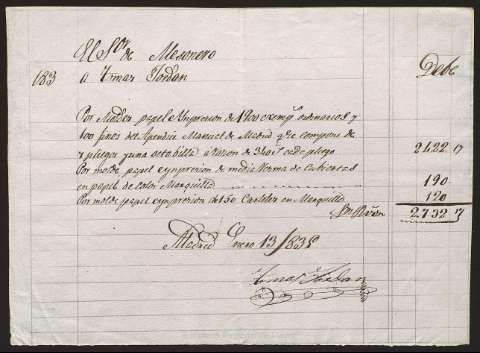 El Sor de Mesonero
183 A Tomas Jordan Debe
Por Molde, papel e Impresion de 1200 exemps ordinarios y
100 finos del Apendice Manual de Madrid qe se compone de
7 pliegos y una octabilla á razon de cada pliego 2422 17
Por molde papel e ympresion de media Resma de Cubiertas
en papel de Color Marquilla 190
Por molde papel e ympresion de 150 Carteles en Marquilla 120
Rs Vellon 2.732 17
Madrid Enero 13/1835
Tomas Jordan